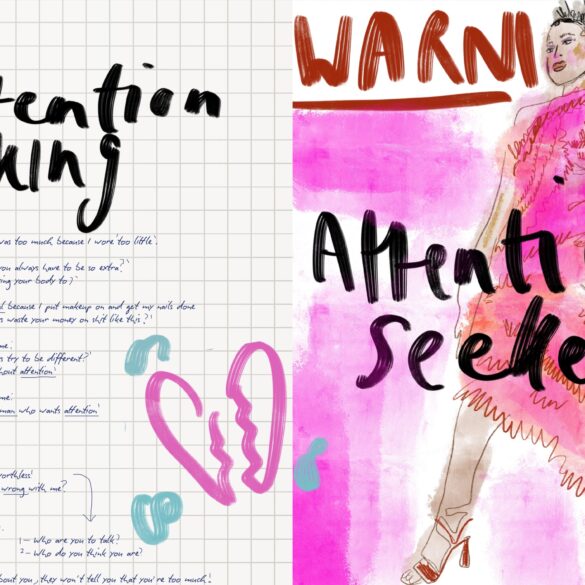 tention
king
was too much because I wore 'too little'.
you always have to be so extra?'
ing your body to?'
because I put makeup on and get my nails done
s waste your money on shit like this?'
me:
s try to be different?'
hout attention'
me:
man who wants attention'
orthless'
wrong with me?
1 - Who are you to talk?
2 - Who do you think you are?
about you, they won't tell you that you're too much!
WARNI
Attenti
Seeke